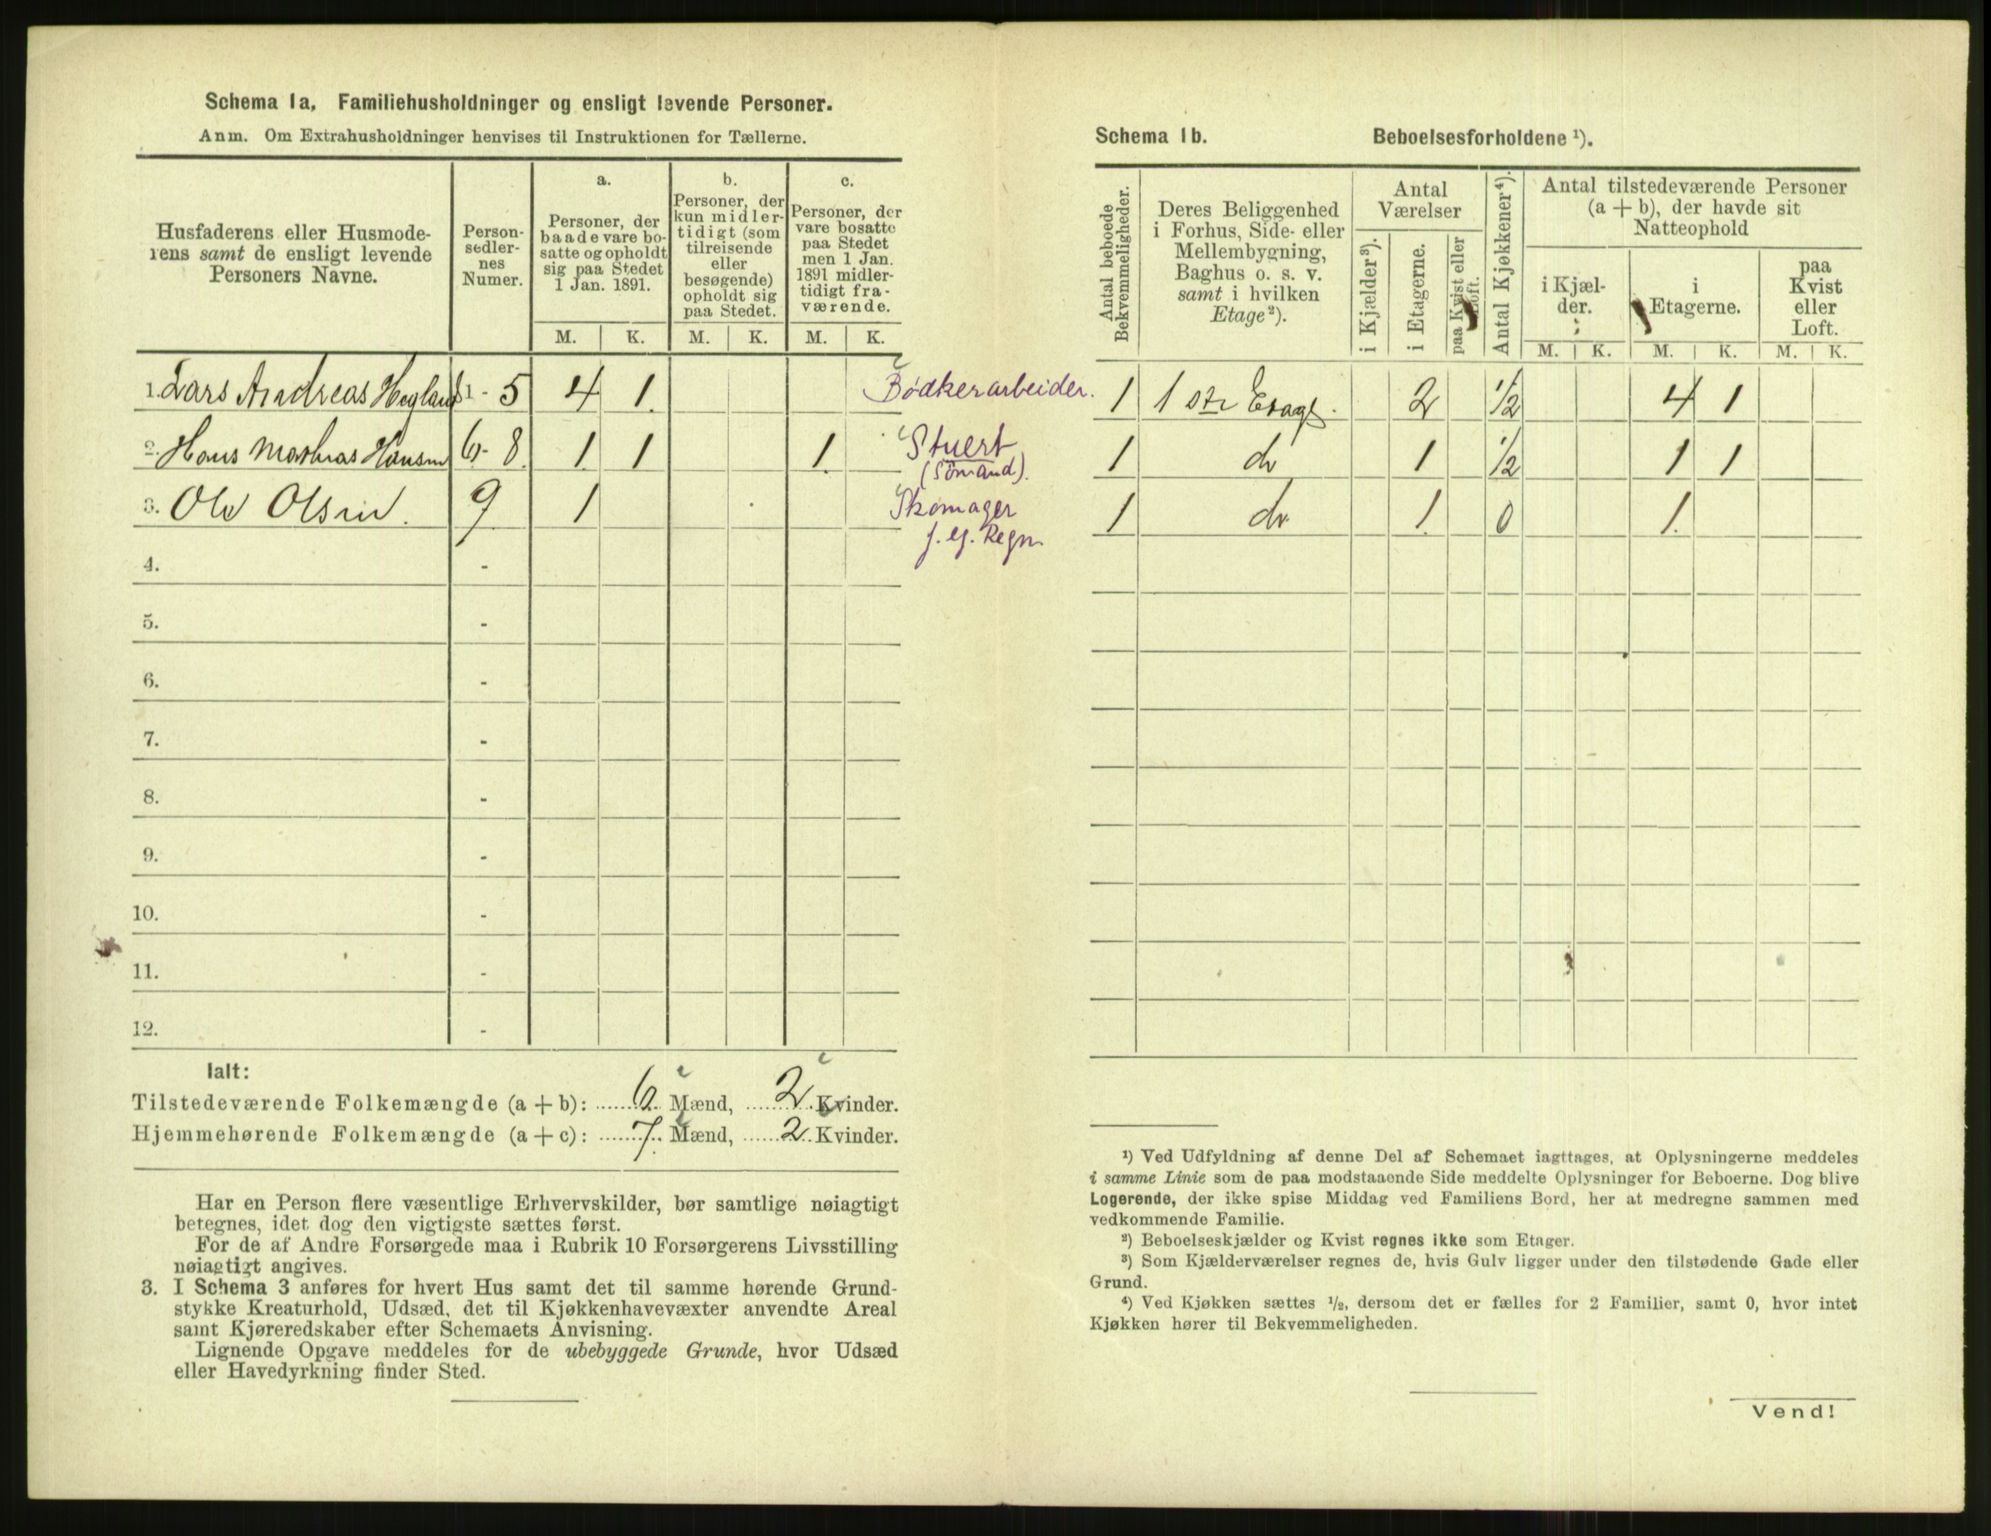 Schema 1a. Familiehusholdninger og ensligt levende Personer.
Anm. Om Extrahusholdninger henvises til Instruktionen for Tællerne.
Husfaderens eller Husmode-
rens samt de ensligt levende
Personers Navne.
Person-
sedler-
nes
Numer.
a.
Personer, der
baade vare bo-
satte og opholdt
sig paa Stedet
1 Jan. 1891.
b.
Personer, der
kun midler-
tidigt (som
tilreisende
eller
besøgende)
opholdt sig
paa Stedet.
c.
Personer, der
vare bosatte
paa Stedet
men 1 Jan.
1891 midler-
tidigt fra-
værende.
M. K. M. K. M. K.
1. Lars Andreas Hegland 1 - 5 4 1. Bødkerarbeider.
2. Hans Mathias Hansen 6 - 8 1 1 1. Stuert
(Sömand).
3. Ole Olsen. 9 1 Skomager
f. eg. Regn.
4. -
5. -
6. -
7. -
8. -
9. -
10. -
11. -
12. -
Ialt:
Tilstedeværende Folkemængde (a + b): 6 Mænd, 2 Kvinder.
Hjemmehørende Folkemængde (a + c): 7. Mænd, 2 Kvinder.
Har en Person flere væsentlige Erhvervskilder, bør samtlige nøiagtigt
betegnes, idet dog den vigtigste sættes først.
For de af Andre Forsørgede maa i Rubrik 10 Forsørgerens Livsstilling
nøiagtigt angives.
3. I Schema 3 anføres for hvert Hus samt det til samme hørende Grund-
stykke Kreaturhold, Udsæd, det til Kjøkkenhavevæxter anvendte Areal
samt Kjøreredskaber efter Schemaets Anvisning.
Lignende Opgave meddeles for de ubebyggede Grunde, hvor Udsæd
eller Havedyrkning finder Sted.
Schema 1b. Beboelsesforholdene ¹).
Antal beboede
Bekvemmeligheder.
Deres Beliggenhed
i Forhus, Side- eller
Mellembygning,
Baghus o. s. v.
samt i hvilken
Etage²).
Antal
Værelser
i Kjælder³).
i Etagerne.
paa Kvist eller
Loft.
Antal Kjøkkener⁴).
Antal tilstedeværende Personer
(a + b), der havde sit
Natteophold
i Kjæl-
der.
i
Etagerne.
paa
Kvist
eller
Loft.
M. K. M. K. M. K.
1 1ste Etage. 2 1/2 4 1
1 do 1 1/2 1 1
1 do 1. 0 1.
¹) Ved Udfyldning af denne Del af Schemaet iagttages, at Oplysningerne meddeles
i samme Linie som de paa modstaaende Side meddelte Oplysninger for Beboerne. Dog blive
Logerende, der ikke spise Middag ved Familiens Bord, her at medregne sammen med
vedkommende Familie.
²) Beboelseskjælder og Kvist regnes ikke som Etager.
³) Som Kjælderværelser regnes de, hvis Gulv ligger under den tilstødende Gade eller
Grund.
⁴) Ved Kjøkken sættes ½, dersom det er fælles for 2 Familier, samt 0, hvor intet
Kjøkken hører til Bekvemmeligheden.
Vend!